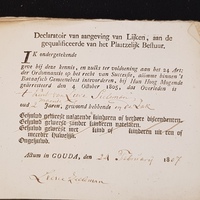 Declaratoir van aangeving van Lijken, aan de
gequalificeerde van het Plaatzelijk Bestuur.
IK ondergeteekende
geve bij deze kennis, en zulks ter voldoening aan het 24 Art:
der Ordonnantie op het recht van Successie, alömme binnen 't
Bataafsch Gemeenebest intevorderen, bij Hun Hoog Mogende
gearresteerd den 4 October 1805, dat Overleden is
oud 2 Jaren, gewoond hebbende
Gehuwd geweest nalatende kinderen of verdere descendenten.
Gehuwd geweest zonder kinderen natelaten.
Gehuwd geweest met kind of kinderen uit een of
meerdere Huwelijk.
Ongehuwd.
Actum in GOUDA, den 24 Februarij 1807